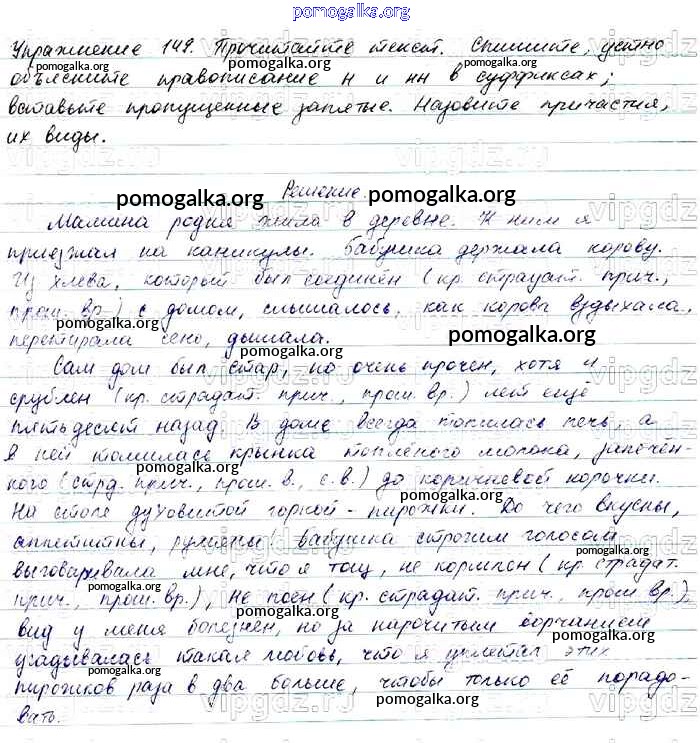 pomogalka.org
Упражнение 149. Прочитайте текст. Спишите, устно
объясните правописание н и нн в суффиксах;
вставьте пропущенные запятые. Назовите причастия,
их виды.
Решение.
Мамина родня жила в деревне. К ним я
приезжал на каникулы. Бабушка держала корову.
Из хлева, который был соединён (кр. страдат. прич.,
прош. вр.) с домом, слышалось, как корова вздыхала,
перетирала сено, дышала.
Сам дом был стар, но очень прочен, хотя и
срублен (кр. страдат. прич., прош. вр.) лет ещё
пятьдесят назад. В доме всегда топилась печь, а
в ней томилась крынка топлёного молока, запечён-
ного (стрд. прич., прош. в., с.в.) до коричневой корочки.
На столе духовитой горкой - пирожки. До чего вкусны,
аппетитны, румяны! Бабушка строгим голосом
выговаривала мне, что я тощ, не кормлен (кр. страдат.
прич., прош. вр.), не поен (кр. страдат. прич., прош вр.),
вид у меня болезнен, но за нарочитым ворчанием
угадывалась такая любовь, что я уплетал этих
пирожков раза в два больше, чтобы только её порадо-
вать.